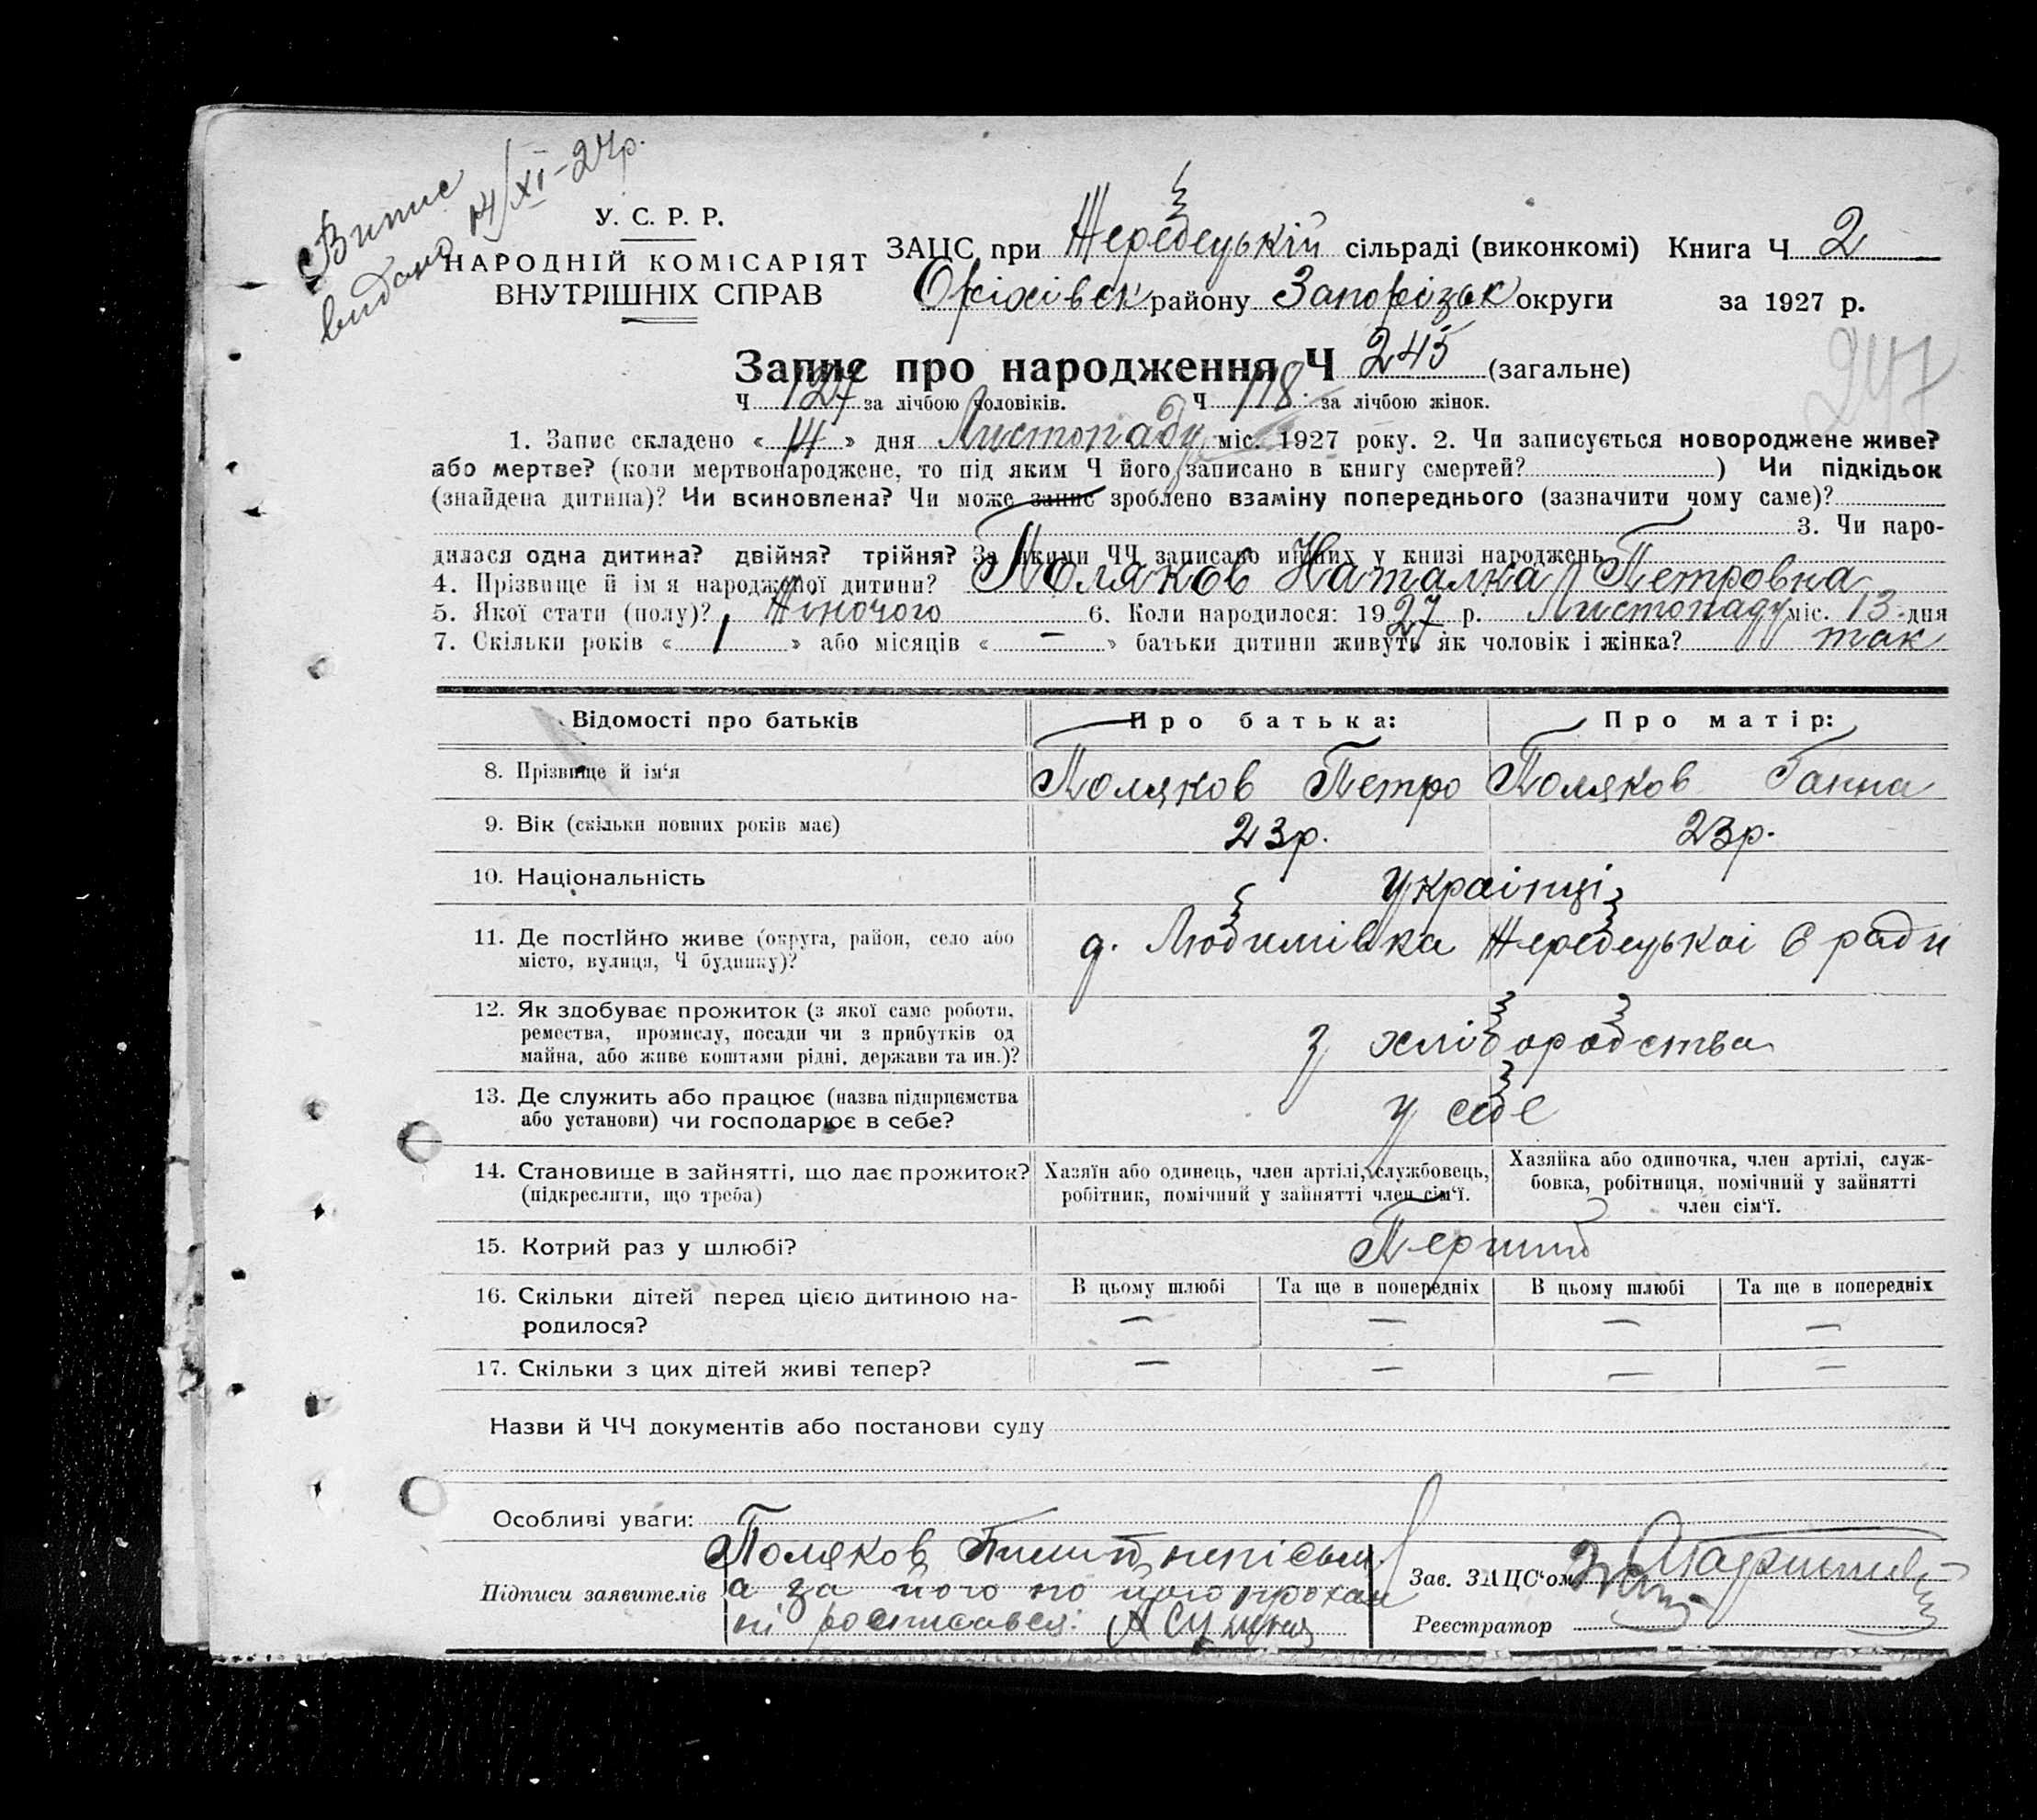 Випис
видано 14/XI-27р.
У. С. Р. Р.
НАРОДНІЙ КОМІСАРІЯТ
ВНУТРІШНІХ СПРАВ
ЗАЦС при Жеребецькій сільраді (виконкомі) Книга Ч 2
Оріхівськ району Запорізьк округи за 1927 р.
247
Запис про народження Ч 245 (загальне)
Ч 127 за лічбою чоловіків. Ч 118 за лічбою жінок.
1. Запис складено « 14 » дня Листопаду міс. 1927 року. 2. Чи записується новороджене живе?
або мертве? (коли мертвонароджене, то під яким Ч його записано в книгу смертей? ) Чи підкідьок
(знайдена дитина)? Чи всиновлена? Чи може запис зроблено взаміну попереднього (зазначити чому саме)?
3. Чи наро-
дилася одна дитина? двійня? трійня? За якими ЧЧ записано инших у книзі народжень
4. Прізвище й ім я народженої дитини? Поляков Наталка Петровна
5. Якої стати (полу)? Жіночого 6. Коли народилося: 1927 р. Листопаду міс. 13 дня
7. Скільки років « 1 » або місяців « — » батьки дитини живуть як чоловік і жінка? так
Відомості про батьків Про батька: Про матір:
8. Прізвище й ім‘я Поляков Петро Поляков Ганна
9. Вік (скільки повних років має) 23р. 23р.
10. Національність українці
11. Де постійно живе (округа, район, село або
місто, вулиця, Ч будинку)? д. Любимівка Жеребецької с ради
12. Як здобуває прожиток (з якої саме роботи,
ремества, промислу, посади чи з прибутків од
майна, або живе коштами рідні, держави та ин.)? з хліборобства
13. Де служить або працює (назва підприємства
або установи) чи господарює в себе? у себе
14. Становище в зайнятті, що дає прожиток?
(підкреслити, що треба)
Хазяїн або одинець, член артілі, службовець,
робітник, помічний у зайнятті член сім‘ї.
Хазяйка або одиночка, член артілі, служ-
бовка, робітниця, помічний у зайнятті
член сім‘ї.
15. Котрий раз у шлюбі? Перший
16. Скільки дітей перед цією дитиною на-
родилося?
В цьому шлюбі Та ще в попередніх В цьому шлюбі Та ще в попередніх
— — — —
17. Скільки з цих дітей живі тепер? — — — —
Назви й ЧЧ документів або постанови суду
Особливі уваги:
Підписи заявителів
Поляков неписьм.
а за його по його прохан
ні росписався:
Зав. ЗАЦС‘ом
Реєстратор